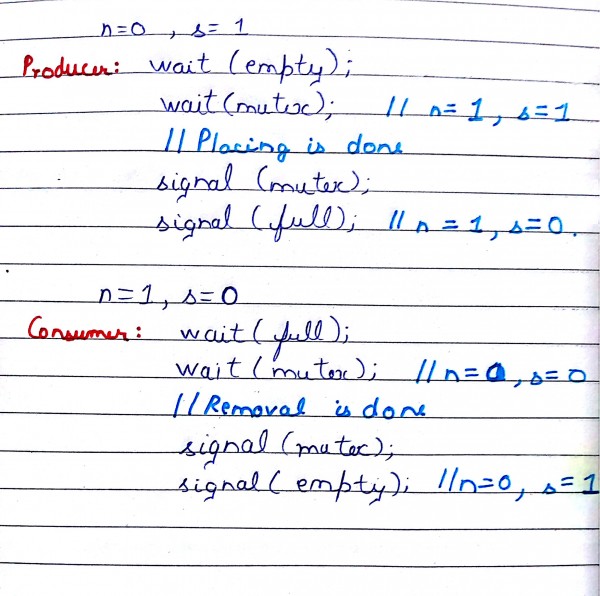 n=0 , s= 1
Producer: wait (empty);
wait(mutex); // n= 1, s=1
// Placing is done
signal (mutex);
signal (full); // n = 1, s=0.
n=1, s=0
Consumer: wait( full);
wait ( mutex); // n=0, s=0
// Removal is done
signal (mutex);
signal( empty); // n=0, s=1